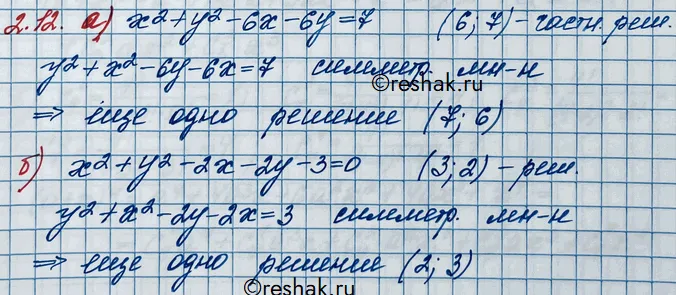 2.12. а) x² + y² - 6x - 6y = 7 (6; 7) - частн. реш.
y² + x² - 6y - 6x = 7 симметр. мн-н
©reshak.ru
⇒ еще одно решение (7; 6)
б) x² + y² - 2x - 2y - 3 = 0 (3; 2) - реш.
y² + x² - 2y - 2x = 3 симметр. мн-н
⇒ еще одно решение (2; 3)
©reshak.ru